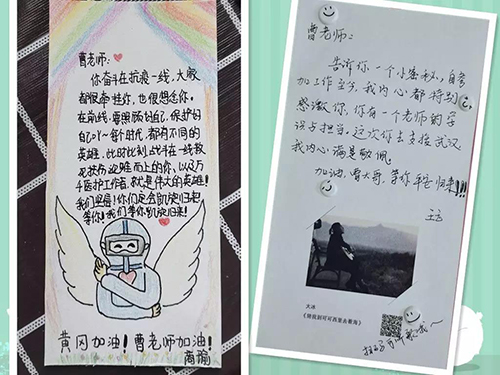 曹老师:
你奋斗在抗疫一线,大家
都很牵挂你,也很想念你。
在前线,要照顾好自己,保护好
自己吖~每个时代,都有不同的
英雄,此时此刻战斗在一线救
死扶伤迎难而上的你,以及万
千医护工作者,就是伟大的英雄!
我们坚信!你们定会凯旋归来!
等你!我们等你凯旋归来!
黄冈加油!曹老师加油!
曹老师:
告诉你一个小秘密,自参
加工作至今,我内心都特别
感激你,你有一个老师的学
识与担当。这次你去支援武汉
我内心满是敬佩。
加油,曹大哥,等你平安归来!!!
大冰
《陪我到可可西里去看海》